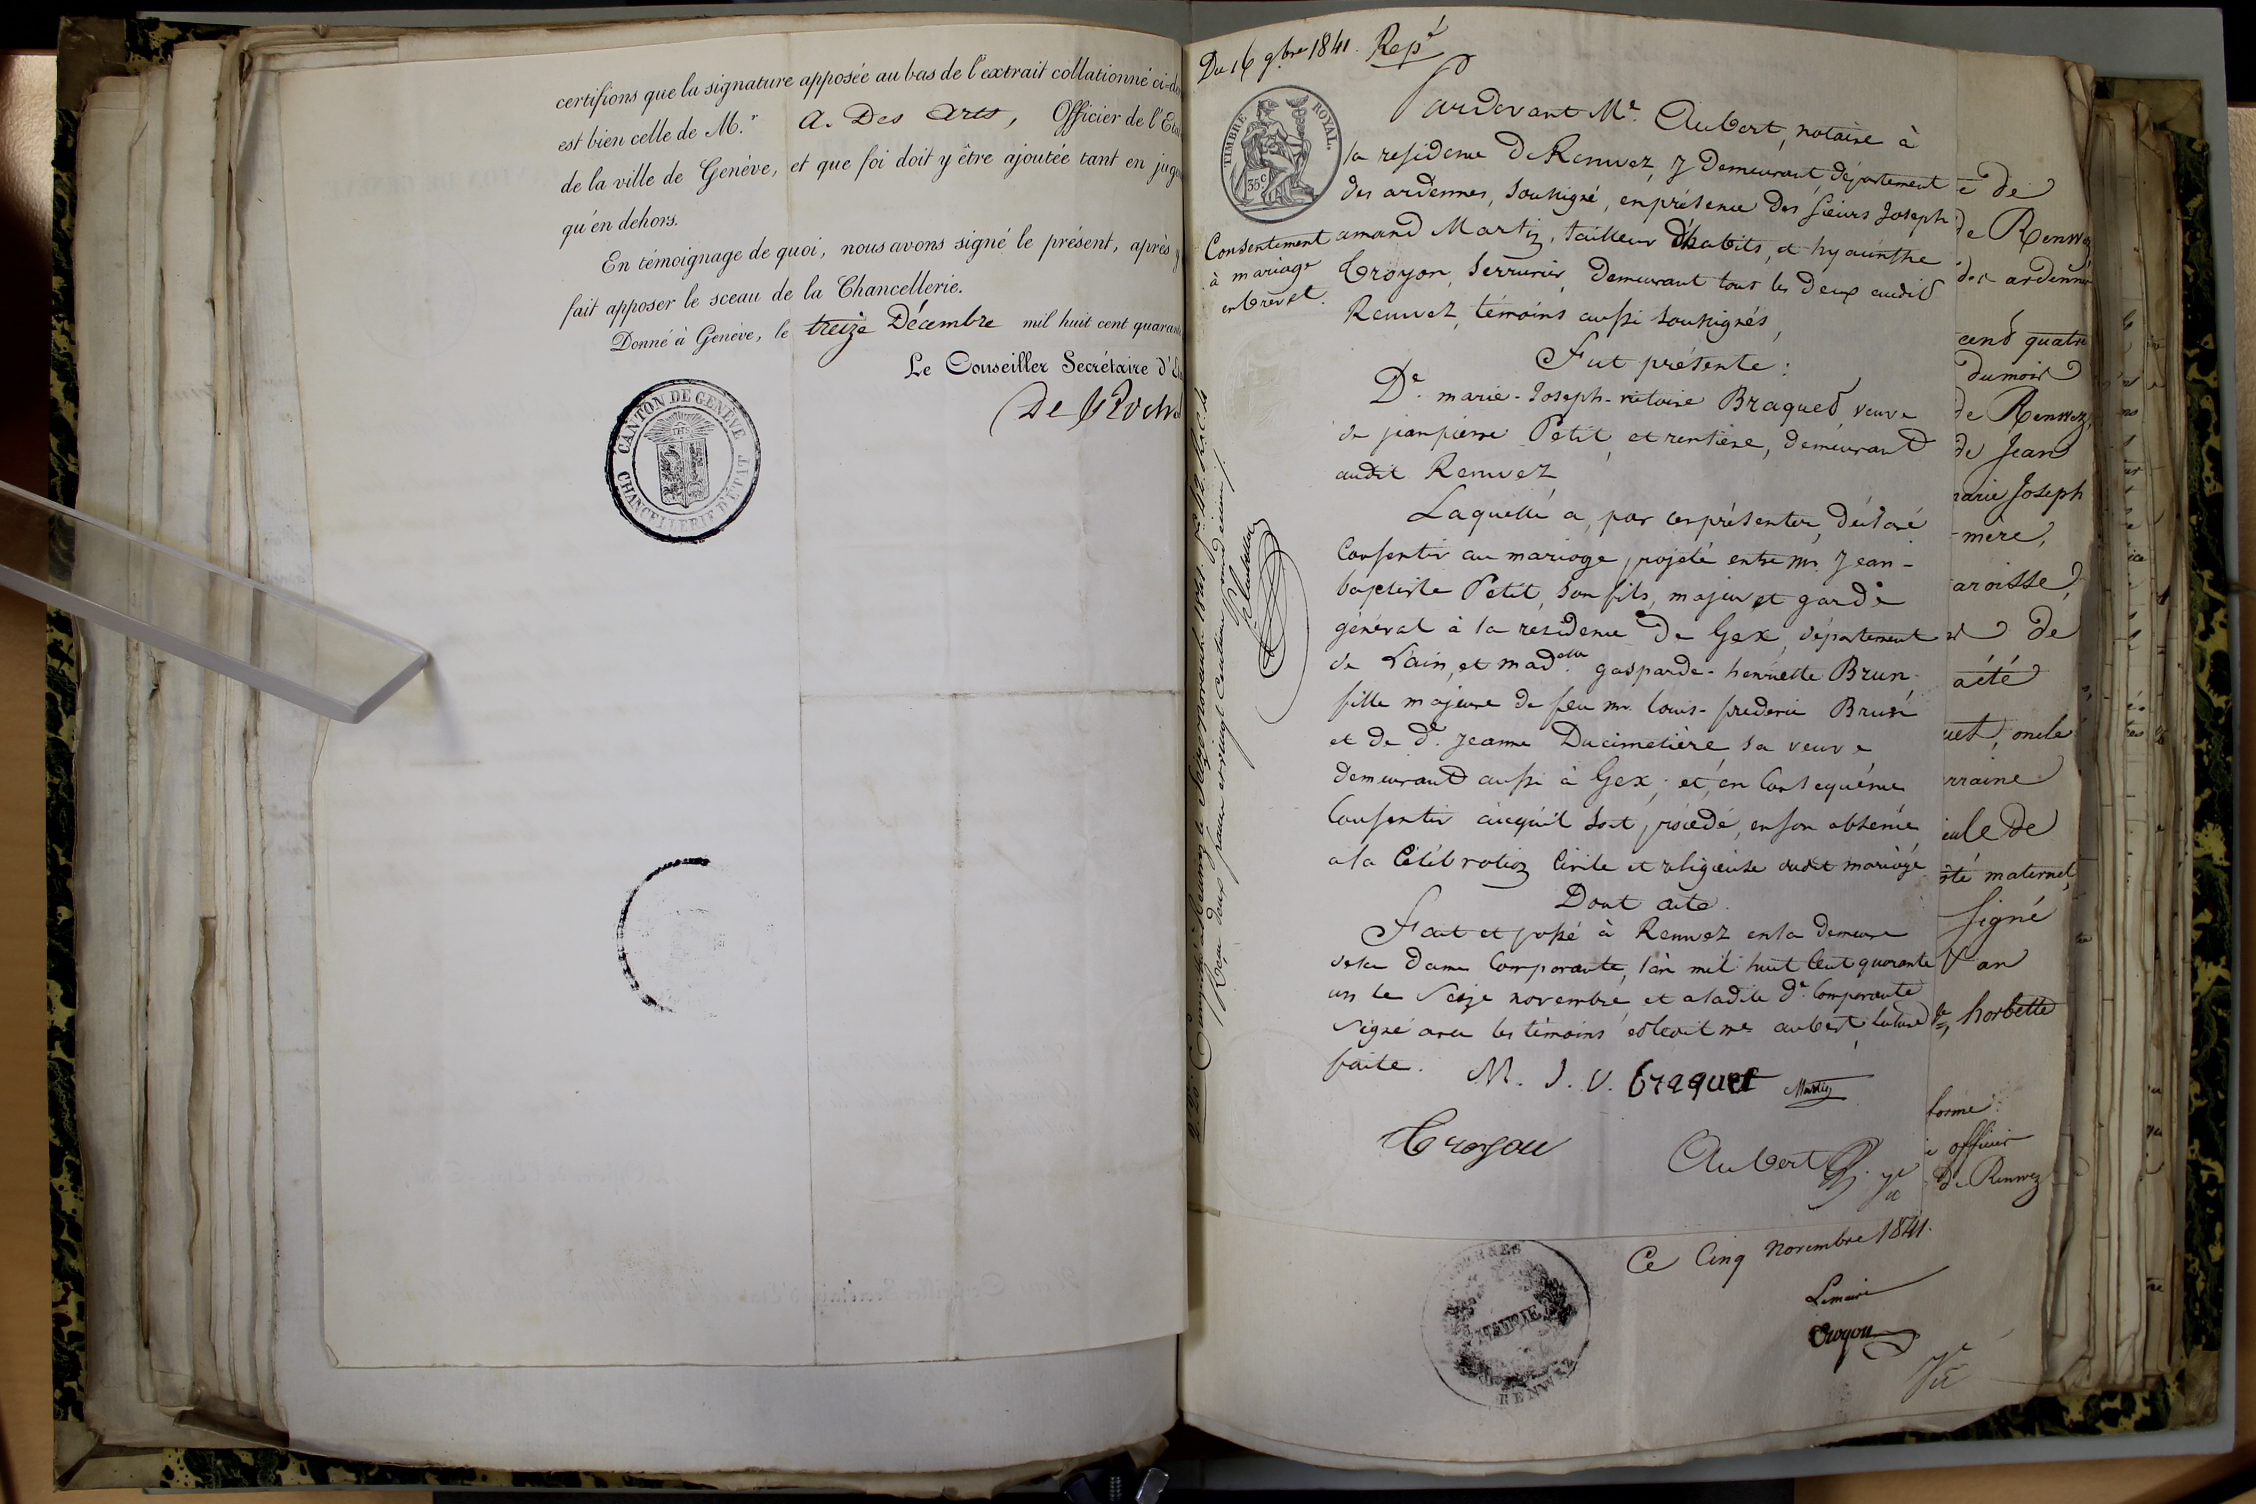 certifions que la signature apposée au bas de l'extrait collationné ci-de
est bien celle de M.r A. Des Arts, Officier de l'Eta
de la ville de Genève, et que foi doit y être ajoutée tant en juge
qu'en dehors.
En témoignage de quoi, nous avons signé le présent, après y
fait apposer le sceau de la Chancellerie.
Donné à Genève, le treize Décembre mil huit cent quarant
Le Conseiller Secrétaire d'E
CANTON DE GENÈVE
CHANCELLERIE D'ÉTAT
Du 16 9bre 1841. Rep.é
TIMBRE ROYAL.
35c
Consentement
à mariage
en brevet.
Pardevant Me. Aubert, notaire à
la residence de Renwez, y demeurant, département
des ardennes, soussigné, en présence des sieurs Joseph
amand Martin, tailleur d'habits, et hyacinthe
Croyon, serrurier, demeurant tous les deux audit
Renwez, témoins aussi soussignés,
Fut présente:
De. marie-Joseph-victoire Braquet veuve
de jean pierre Petit, et rentière, demeurant
audit Renwez
Laquelle a, par ces présentes, déclaré
Consentir au mariage projeté entre mr. Jean-
baptiste Petit, son fils, majeur et garde
général à la residence de Gex, département
de L'ain, et madelle gasparde-henriette Brun
fille majeure de feu mr. louis-frederic Brun
et de de. Jeanne Ducimetière, sa veuve
demeurant aussi à Gex; et, en Consequence
Consentir à ce qu'il soit procédé, en son absence
a la Célébration Civile et religieuse dudit mariage
Dont acte.
Fait et passé à Renwez en la demeure
de la dame Comparante, l'an mil huit Cent quarante
un le seize novembre, et a ladite de. Comparante
signé avec les témoins et led. me aubert, lecture
faite.
M. J. V. braquet Martin
Croyon
Aubert
Ce Cinq Novembre 1841.
Lemaire
Croyon
MAIRIE
RENWEZ
de
de Renwez
des ardennes
cent quatre
du mois
de Renwez,
de Jean
marie Joseph
mère,
aroisse,
de
a été
uet, oncle
rraine
eule de
té maternel,
signé
an
horbette
forme
officier
de Renwez